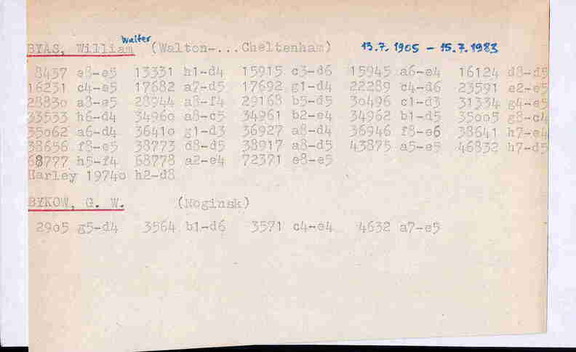 Walter
BYAS, William (Walton-...Cheltenham) 13.7.1905 - 15.7.1983
8457 e8-e5 13331 h1-d4 15915 c3-d6 15945 a6-e4 16124 d8-d5
16231 c4-e5 17682 a7-d5 17692 g1-d4 22289 c4-d6 23591 e2-e5
28830 a3-e5 28944 a8-f4 29168 b5-d5 30496 c1-d3 31334 g4-e5
33533 h6-d4 34960 a8-c5 34961 b2-e4 34962 b1-d5 35005 g8-c4
35062 a6-d4 36410 g1-d3 36927 a8-d4 36946 f8-e6 38641 h7-e4
38656 f8-e5 38773 d8-d5 38917 a8-d5 43875 a5-e5 46832 h7-d5
68777 h5-f4 68778 a2-e4 72371 e8-e5
Harley 1974o h2-d8
BYKOW, G. W. (Noginsk)
2905 g5-d4 3564 b1-d6 3571 c4-e4 4632 a7-e5